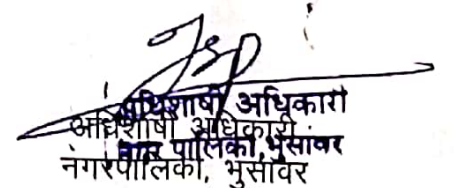 अधिशाषी अधिकारी
अधिशाषी अधिकारी
नगर पालिका, भुसावर
नगरपालिका, भुसावर